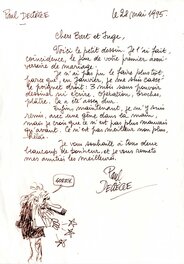 Paul DELIÈGE le 28 mai 1995.
Chers Bert et Inge,
Voici le petit dessin. Je l'ai fait,
coïncidence, le jour de votre premier anni-
versaire de mariage.
Je n'ai pas pu le faire plus tôt,
parce que, en janvier, je me suis cassé
le poignet droit: 3 mois sans pouvoir
dessiner ni écrire, opération, broches,
plâtre. Ça a été assez dur.
Enfin maintenant, je m'y suis
remis, avec une gêne dans la main,
mais je crois que ce n'est pas plus mauvais
qu'avant, si ce n'est pas meilleur mon plus.
Je vous souhaite à tous deux
beaucoup de bonheur, et je vous remets
mes amitiés les meilleures.
Paul
DELIÈGE